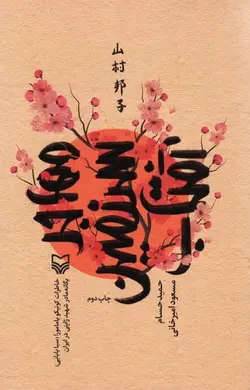 山村邦子
مهاجر
سرزمین
آفتاب
خاطرات کونیکو یامامورا (سبا بابایی)
یگانه مادر شهید ژاپنی در ایران
حمید حسام
مسعود امیرخانی
چاپ دوم